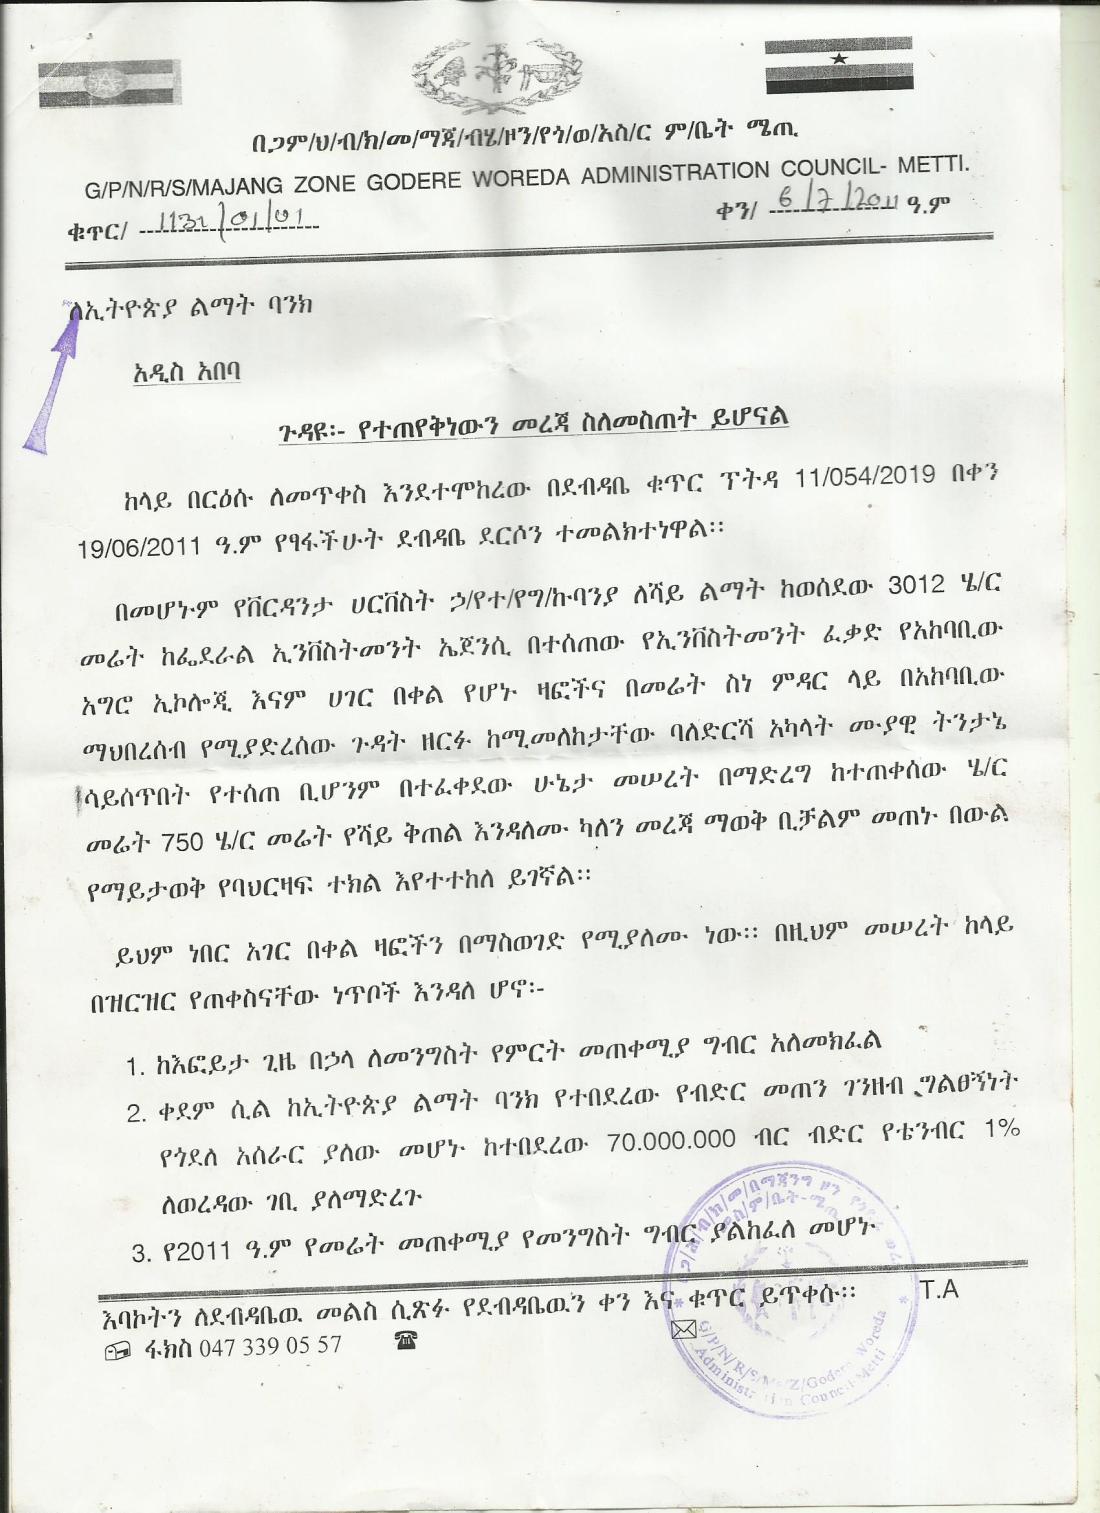 በጋም/ህ/ብ/ክ/መ/ማጃ/ብሄ/ዞን/የጎ/ወ/አስ/ር ም/ቤት ሜጢ
G/P/N/R/S/MAJANG ZONE GODERE WOREDA ADMINISTRATION COUNCIL- METTI.
ቁጥር/ 1131/01/01 ቀን/ 6/7/2011 ዓ.ም
ለኢትዮጵያ ልማት ባንክ
አዲስ አበባ
ጉዳዩ፡- የተጠየቅነውን መረጃ ስለመስጠት ይሆናል
ከላይ በርዕሱ ለመጥቀስ እንደተሞከረው በደብዳቤ ቁጥር ፕትዳ 11/054/2019 በቀን
19/06/2011 ዓ.ም የፃፋችሁት ደብዳቤ ደርሶን ተመልክተነዋል፡፡
በመሆኑም የቨርዳንታ ሀርቨስት ኃ/የተ/የግ/ኩባንያ ለሻይ ልማት ከወሰደው 3012 ሄ/ር
መሬት ከፌደራል ኢንቨስትመንት ኤጀንሲ በተሰጠው የኢንቨስትመንት ፈቃድ የአከባቢው
አግሮ ኢኮሎጂ እናም ሀገር በቀል የሆኑ ዛፎችና በመሬት ስነ ምዳር ላይ በአከባቢው
ማህበረሰብ የሚያድረሰው ጉዳት ዘርፉ ከሚመለከታቸው ባለድርሻ አካላት ሙያዊ ትንታኔ
ሳይሰጥበት የተሰጠ ቢሆንም በተፈቀደው ሁኔታ መሠረት በማድረግ ከተጠቀሰው ሄ/ር
መሬት 750 ሄ/ር መሬት የሻይ ቅጠል እንዳለሙ ካለን መረጃ ማወቅ ቢቻልም መጠኑ በውል
የማይታወቅ የባህርዛፍ ተክል እየተተከለ ይገኛል፡፡
ይህም ነበር አገር በቀል ዛፎችን በማስወገድ የሚያለሙ ነው፡፡ በዚህም መሠረት ከላይ
በዝርዝር የጠቀስናቸው ነጥቦች እንዳለ ሆኖ፡-
1. ከእፎይታ ጊዜ በኃላ ለመንግስት የምርት መጠቀሚያ ግብር አለመክፈል
2. ቀደም ሲል ከኢትዮጵያ ልማት ባንክ የተበደረው የብድር መጠን ገንዘብ ግልፀኝነት
የጎደለ አሰራር ያለው መሆኑ ከተበደረው 70.000.000 ብር ብድር የቴንብር 1%
ለወረዳው ገቢ ያለማድረጉ
3. የ2011 ዓ.ም የመሬት መጠቀሚያ የመንግስት ግብር ያልከፈለ መሆኑ
እባኮትን ለደብዳቤዉ መልስ ሲጽፉ የደብዳቤዉን ቀን እና ቁጥር ይጥቀሱ፡፡ T.A
ፋክስ 047 339 05 57
Administration Council-Metti